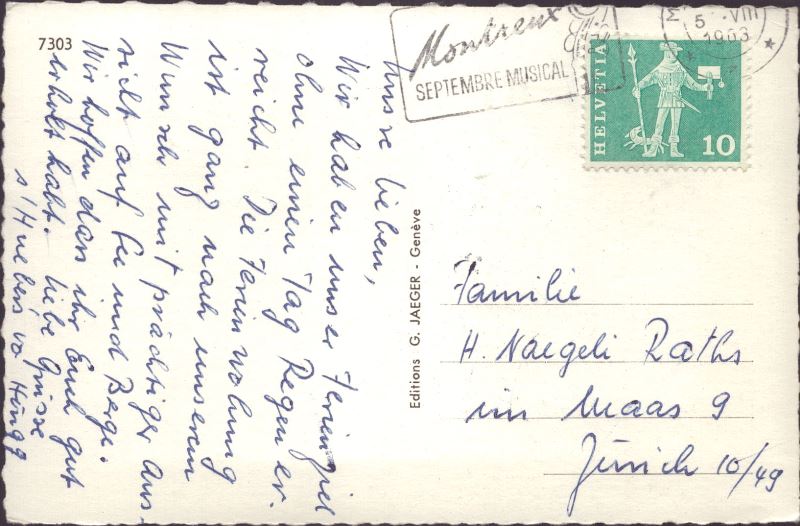 7303
Unsre lieben,
Wir haben unser Ferienziel
ohne einen Tag Regen er-
reicht. Die Ferienwohnung
ist ganz nach unserem
Wunsch mit prächtiger Aus-
sicht auf See und Berge.
Wir hoffen dass ihr Euch gut
erholt habt. liebe Grüsse
s'Huebers vo Höngg
Editions G. JAEGER - Genève
Montreux
SEPTEMBRE MUSICAL
5 VIII
1963
HELVETIA
10
Familie
H. Naegeli Raths
im Maas 9
Zürich 10/49